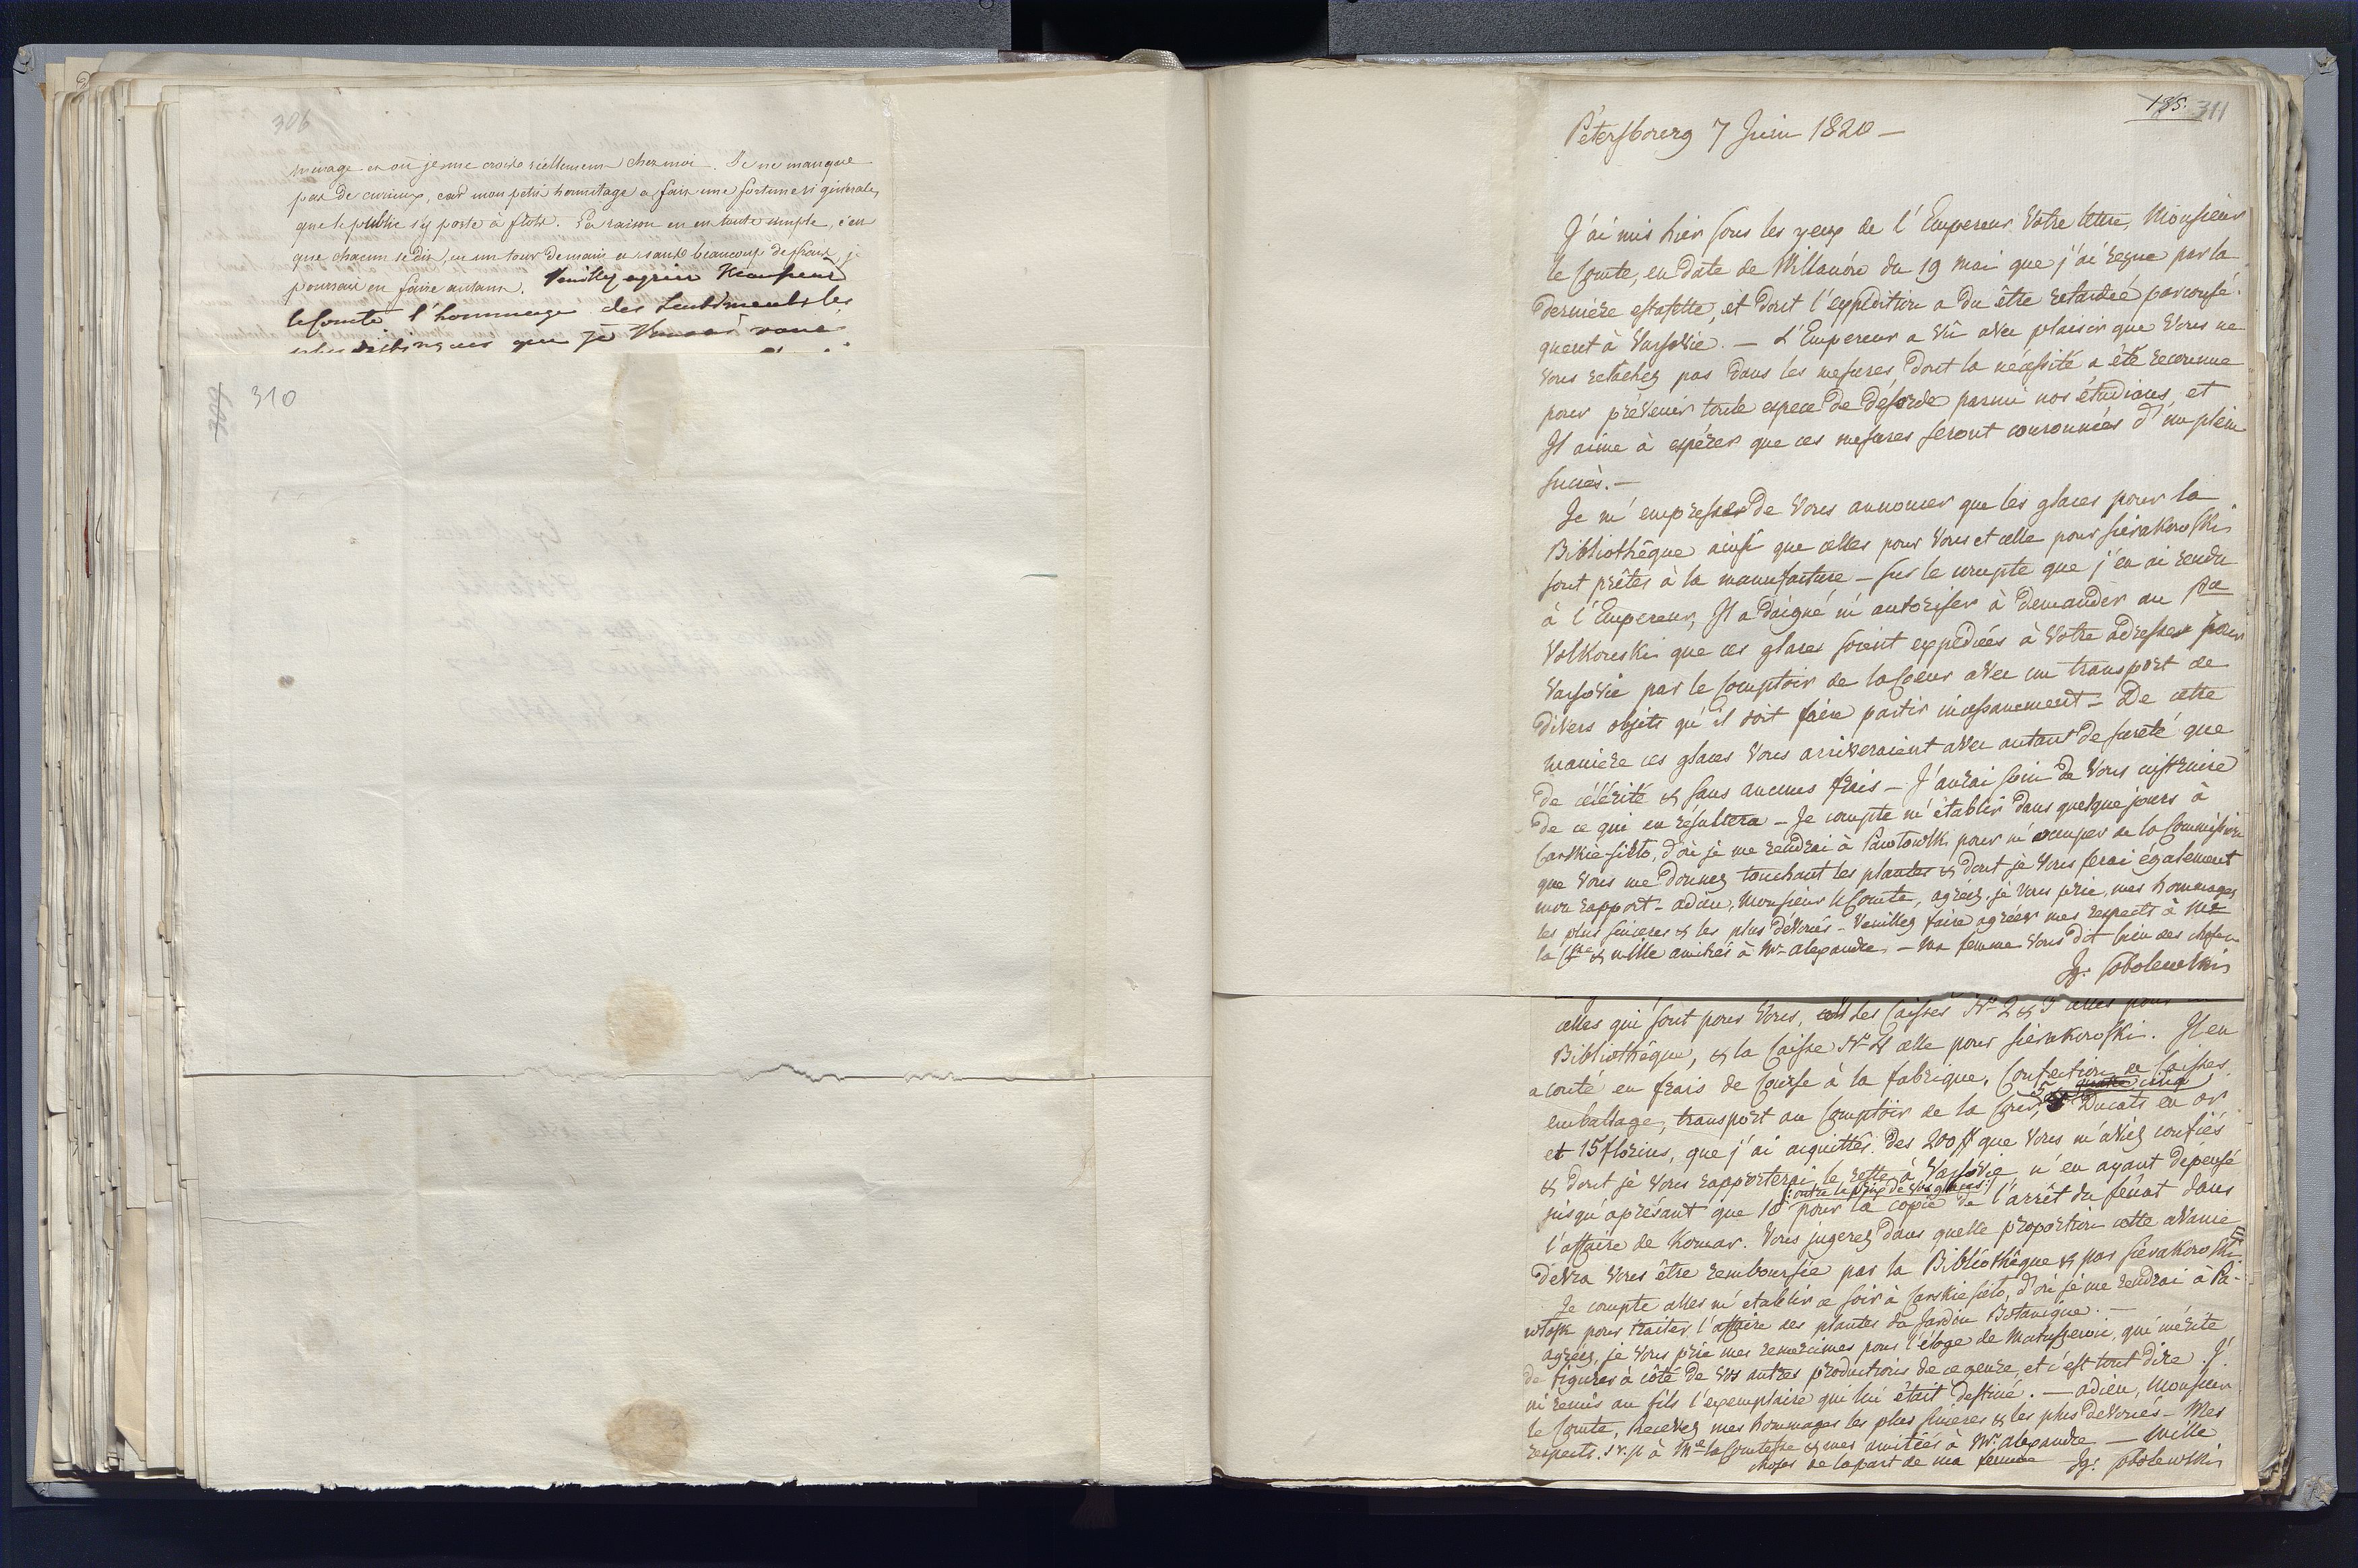 306
ménage et où je me crois réellement chez moi. Je ne manque
pas de curieux, car mon petit hermitage a fait une fortune si générale,
que le public s'y porte à flots. La raison en est toute simple, c'est
que chacun se dit, un tour de main et sans beaucoup de frais, je
pourrais en faire autant. Veuillez agréer Monsieur
le Comte l'hommage des sentiments les
plus distingués que je vous
310
Pétersbourg 7 Juin 1820 —
185. 311
J'ai mis hier sous les yeux de l'Empereur Votre lettre, Monsieur
le Comte, en date de Willanów du 19 mai que j'ai reçue par la
derniere estafette, et dont l'expédition a du être retardée par consé-
quent à Varsovie. — L'Empereur a vû avec plaisir que Vous ne
Vous relâchez pas dans les mesures, dont la nécessité a été reconnue
pour prévenir toute espece de desordre parmi nos étudians, et
Il aime à espérer que ces mesures seront couronnées d'un plein
succès. —
Je m'empresse de Vous annoncer que les glaces pour la
Bibliothêque ainsi que celles pour Vous et celle pour Sierakowski
sont prêtes à la manufacture — sur le compte que j'en ai rendu
à l'Empereur, Il a daigné m'autoriser à demander au Pce
Volkonski que ces glaces soient expédiées à Votre adresse pour
Varsovie par le Comptoir de la Cour avec un transport de
divers objets qu'il doit faire partir incessamment — De cette
maniere ces glaces Vous arriveraient avec autant de sureté que
de célérité & sans aucuns frais — J'aurai soin de Vous instruire
de ce qui en résultera — Je compte m'établir dans quelque jours à
Carskie-sielo, d'où je me rendrai à Pawlowsk pour m'occuper de la Commission
que Vous me donnez touchant les plantes & dont je Vous ferai également
mon rapport — adieu, Monsieur le Comte, agréez, je Vous prie, mes hommages
les plus sinceres & les plus dévoués — Veuillez faire agréer mes respects à Me
la Csse & mille amitiés à Mr alexandre — ma femme Vous dit bien des choses
Ig: Sobolewski
celles qui sont pour Vous, les Caisses No 2 & 3 celles pour
Bibliothêque, & la Caisse No 4 celle pour Sierakowski. Il en
a couté en frais de Course à la fabrique, Confection de Caisses,
emballage, transport au Comptoir de la Cour, 5 cinq Ducats en or
et 15 florins, que j'ai acquittés des 200 # que Vous m'aviez confiés
& dont je Vous rapporterai le reste à Varsovie, n'en ayant dépensé
(: outre le prix de vos glaces :)
jusqu'aprésant que 10 pour la copie de l'arrêt du sénat dans
l'affaire de Komar. Vous jugerez dans quelle proportion cette avance
devra Vous être remboursée par la Bibliothêque & par Sierakowski
Je compte aller m'etablir ce soir à Carskie sielo, d'où je me rendrai à Pa-
wlofsk pour traiter l'affaire des plantes du Jardin Botanique. —
agréez, je Vous prie mes remercimes pour l'éloge de Matuszewic, qui mérite
de figurer à côté de Vos autres productions de ce genre, et c'est tout dire. J'
ai remis au fils l'exemplaire qui lui était destiné. — adieu, Monsieur
le Comte, Recevez mes hommages les plus sinceres & les plus dévoués — Mes
respects s. v. p. à Me la Comtesse & mes amitiés à Mr alexandre — Mille
choses de la part de ma femme Ig: Sobolewski